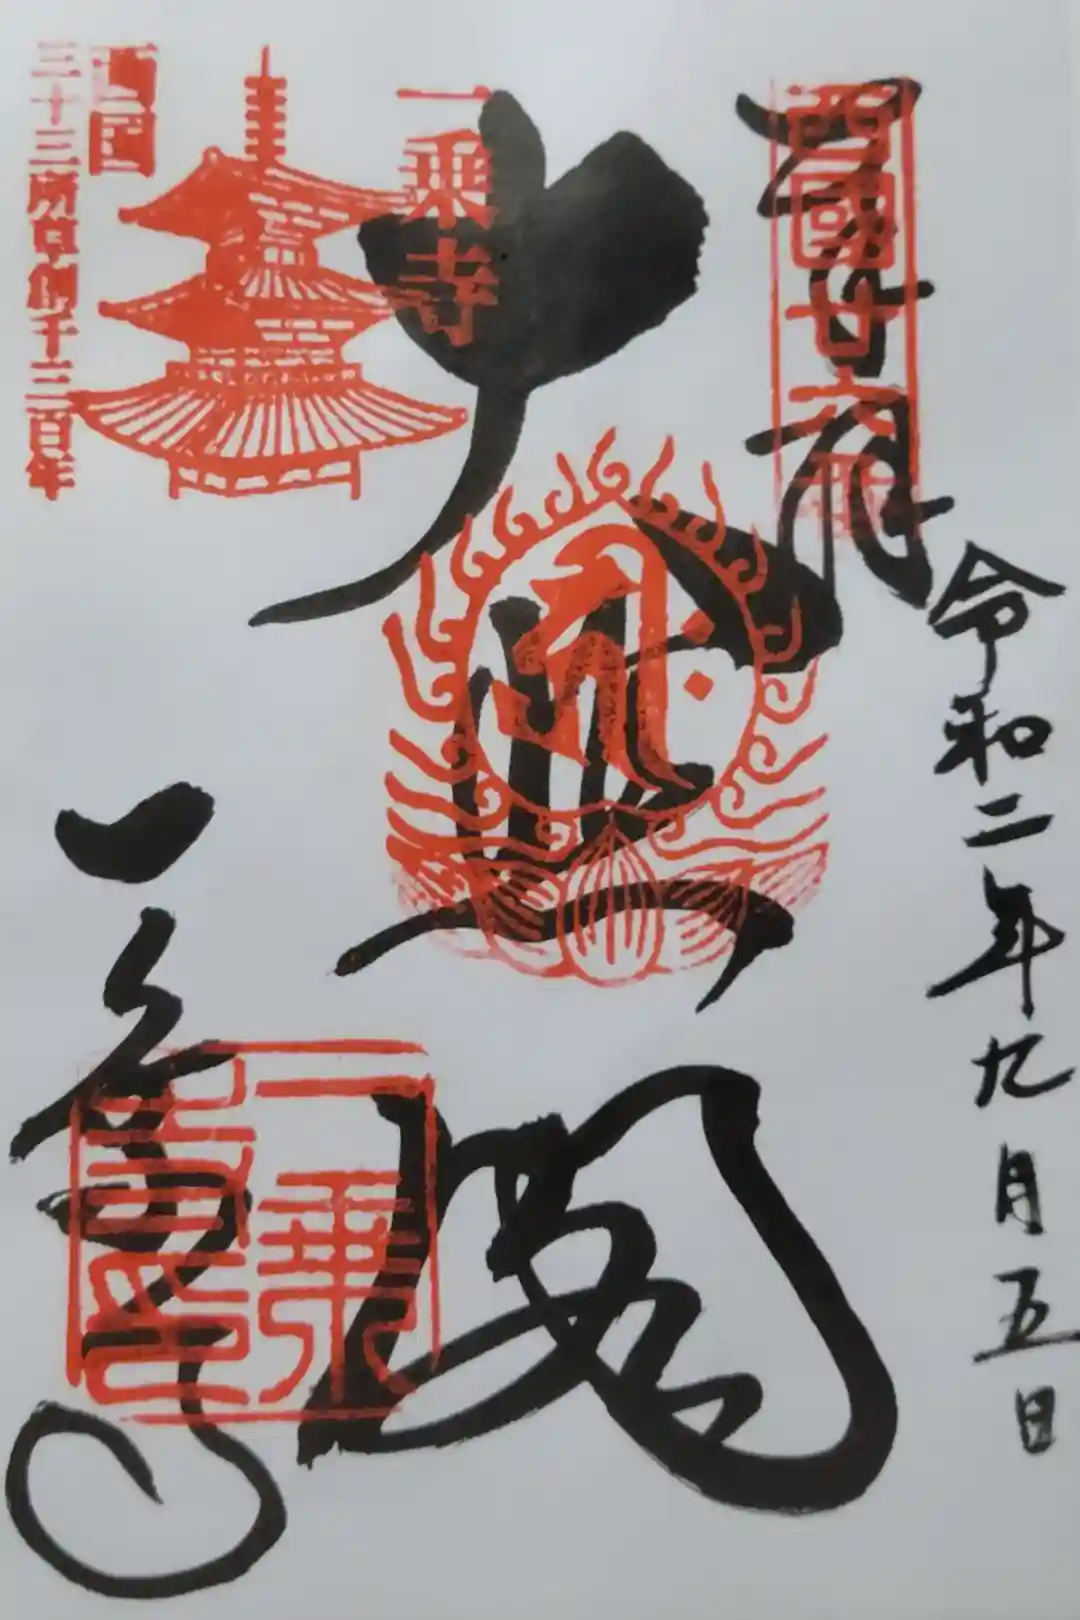 令和二年九月五日
奉拝
西國廿六番
大悲閣
一乗寺
一乗寺
一乗寺印
西国
三十三所草創千三百年